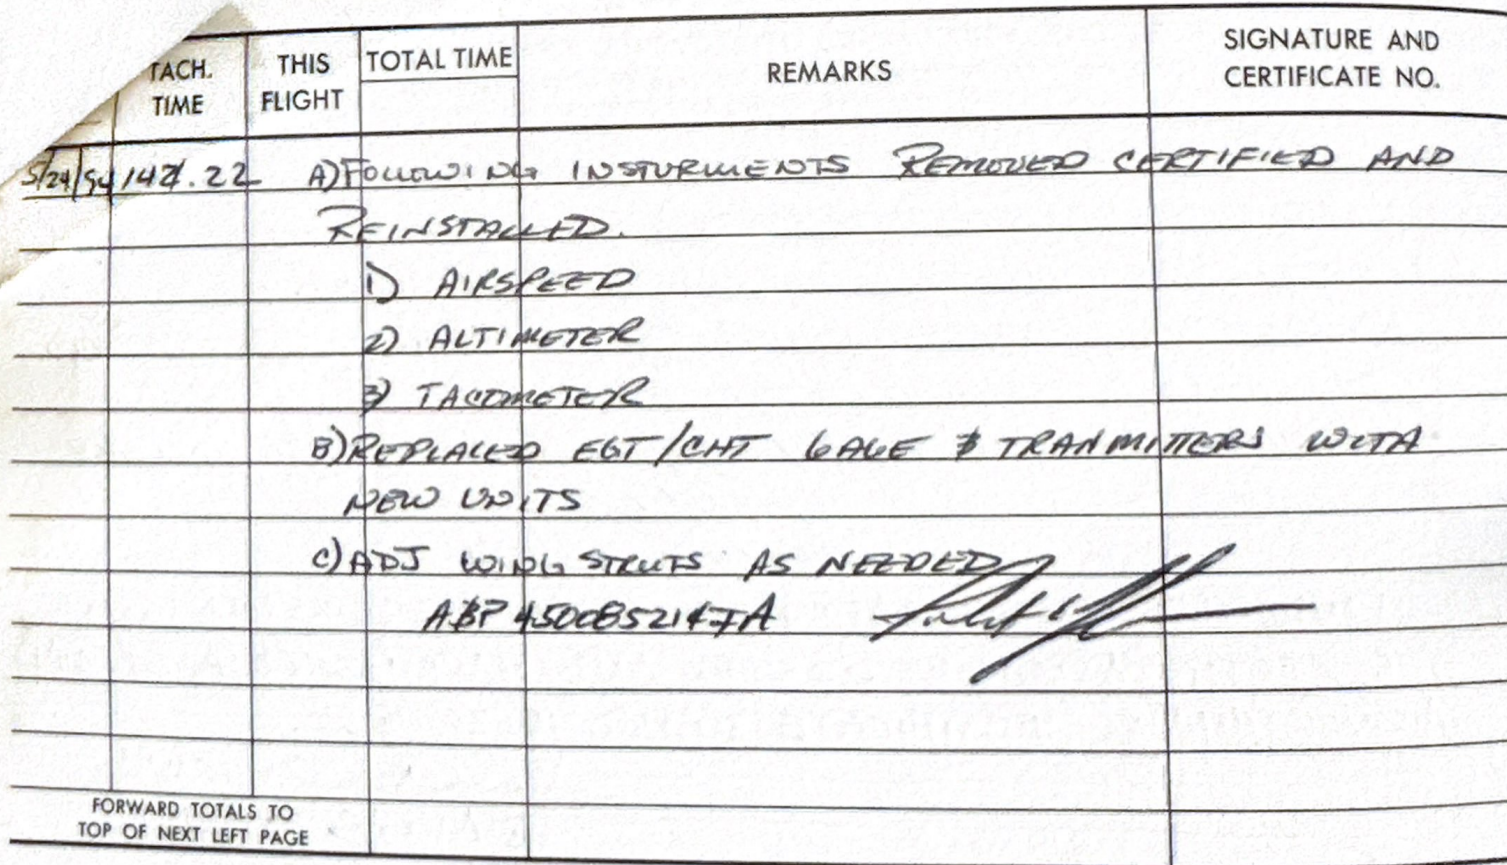 TACH.
TIME
THIS
FLIGHT
TOTAL TIME
REMARKS
SIGNATURE AND
CERTIFICATE NO.
5/24/94 142.22 A) FOLLOWING INSTURMENTS REMOVED CERTIFIED AND
REINSTALLED.
1) AIRSPEED
2) ALTIMETER
3) TACOMETER
B) REPLACED EGT/CHT GAGE & TRANMITTERS WITH
NEW UNITS
C) ADJ WING STRUTS AS NEEDED
A&P
FORWARD TOTALS TO
TOP OF NEXT LEFT PAGE